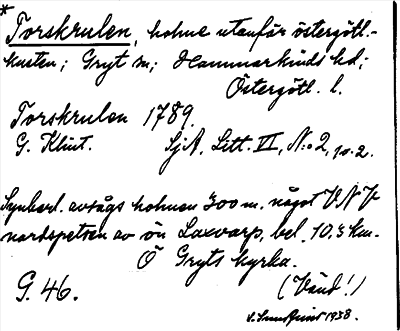 *
Torskrulen, holme utanför östergötl.-
kusten; Gryt sn; Hammarkinds hd;
Östergötl. l.
Torskrulen 1789.
G. Klint. SjA, Litt. VI, N:o 2, p. 2.
Synbarl. avsågs holmen 300 m. något VNV
nordspetsen av ön Laxvarp, bel. 10.3 km.
Ö Gryts kyrka.
G. 46. (Vänd!)
1938.